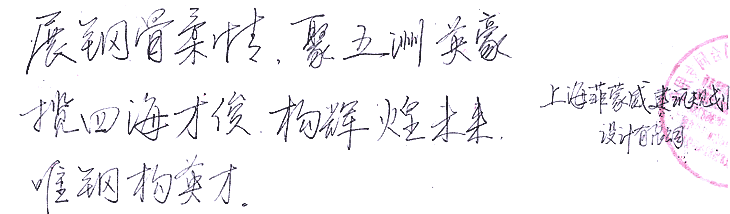 展钢骨柔情，聚五洲英豪
揽四海才俊，构辉煌未来，
唯钢构英才。
上海菲蒙威建筑规划
设计有限公司